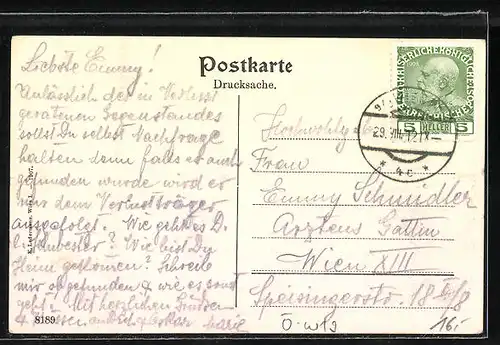 Postkarte
Drucksache.
KAISERLICHE KÖNIGLICHE
5 HELLER 5
29. VII. 12 X
* 4c *
Liebste Emmy!
Anlässlich der in Verlust
geratenen Gegenstandes
sollst Du selbst Nachfrage
halten denn falls er auch
gefunden wurde wird er
nur dem Verlustträger
ausgefolgt. Wie geht es D.
l. Schwester? Wie bist Du
Heim gekommen? Schreib
mir ob gefunden & wie es sonst
geht. Mit herzlichen Grüssen
& Küssen
Hochwohlg.
Frau
Emmy Schmidler
Arztens Gattin
Wien XIII
Speisingerstr. 18
Ö. w13
16.-
8189